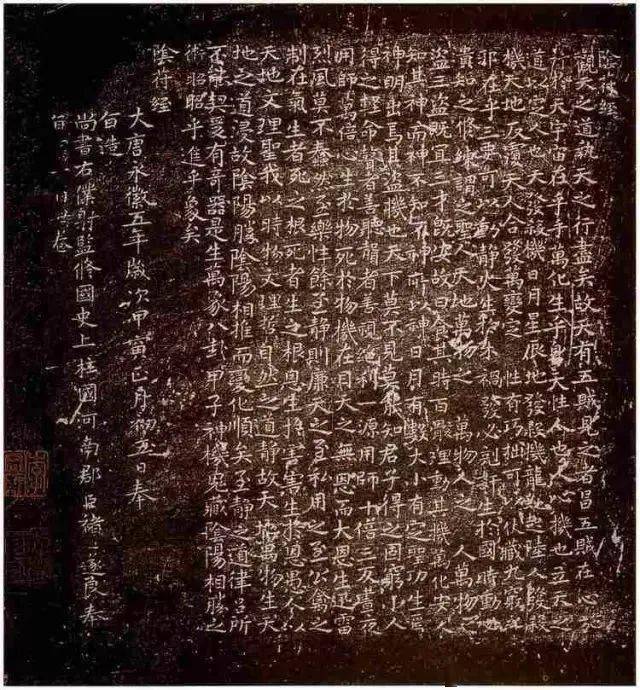 陰符經
觀天之道執天之行盡矣故天有五賊見之者昌五賊在心施
行於天宇宙在乎手萬化生乎身天性人也人心機也立天之
道以定人也天發殺機日月星辰地發殺機龍蛇起陸人發殺
機天地反覆天人合發萬變之性有巧拙可以伏藏九竅之
邪在乎三要可以動靜火生於木禍發必剋奸生於國時動必
潰知之修練謂之聖人天地萬物之萬物人之人萬物之
盜三盜既宜三才既安故曰食其時百骸理動其機萬化安人
知其神而神不知不神所以神日月有數大小有定聖功生焉
神明出焉其盜機也天下莫不見莫能知君子得之固窮小人
得之輕命瞽者善聽聾者善視絕利源用師十倍三反晝夜
用師萬倍心生於物死於物機在目天之無恩而大恩生迅雷
烈風莫不蠢然至樂性餘至靜則廉天之至私用之至公禽之
制在氣生者死之根死者生之根恩生於害害生於恩愚人以
天地文理聖我以時物文理哲自然之道靜故天地萬物生天
地之道浸故陰陽勝陰陽相推而變化順矣至靜之道律呂所
不能契爰有奇器是生萬象八卦甲子神機鬼藏陰陽相勝之
術昭昭乎進乎象矣
陰符經
大唐永徽五年歲次甲寅正月初五日奉
旨造
尚書右僕射監修國史上柱國河南郡臣褚遂良奉
旨